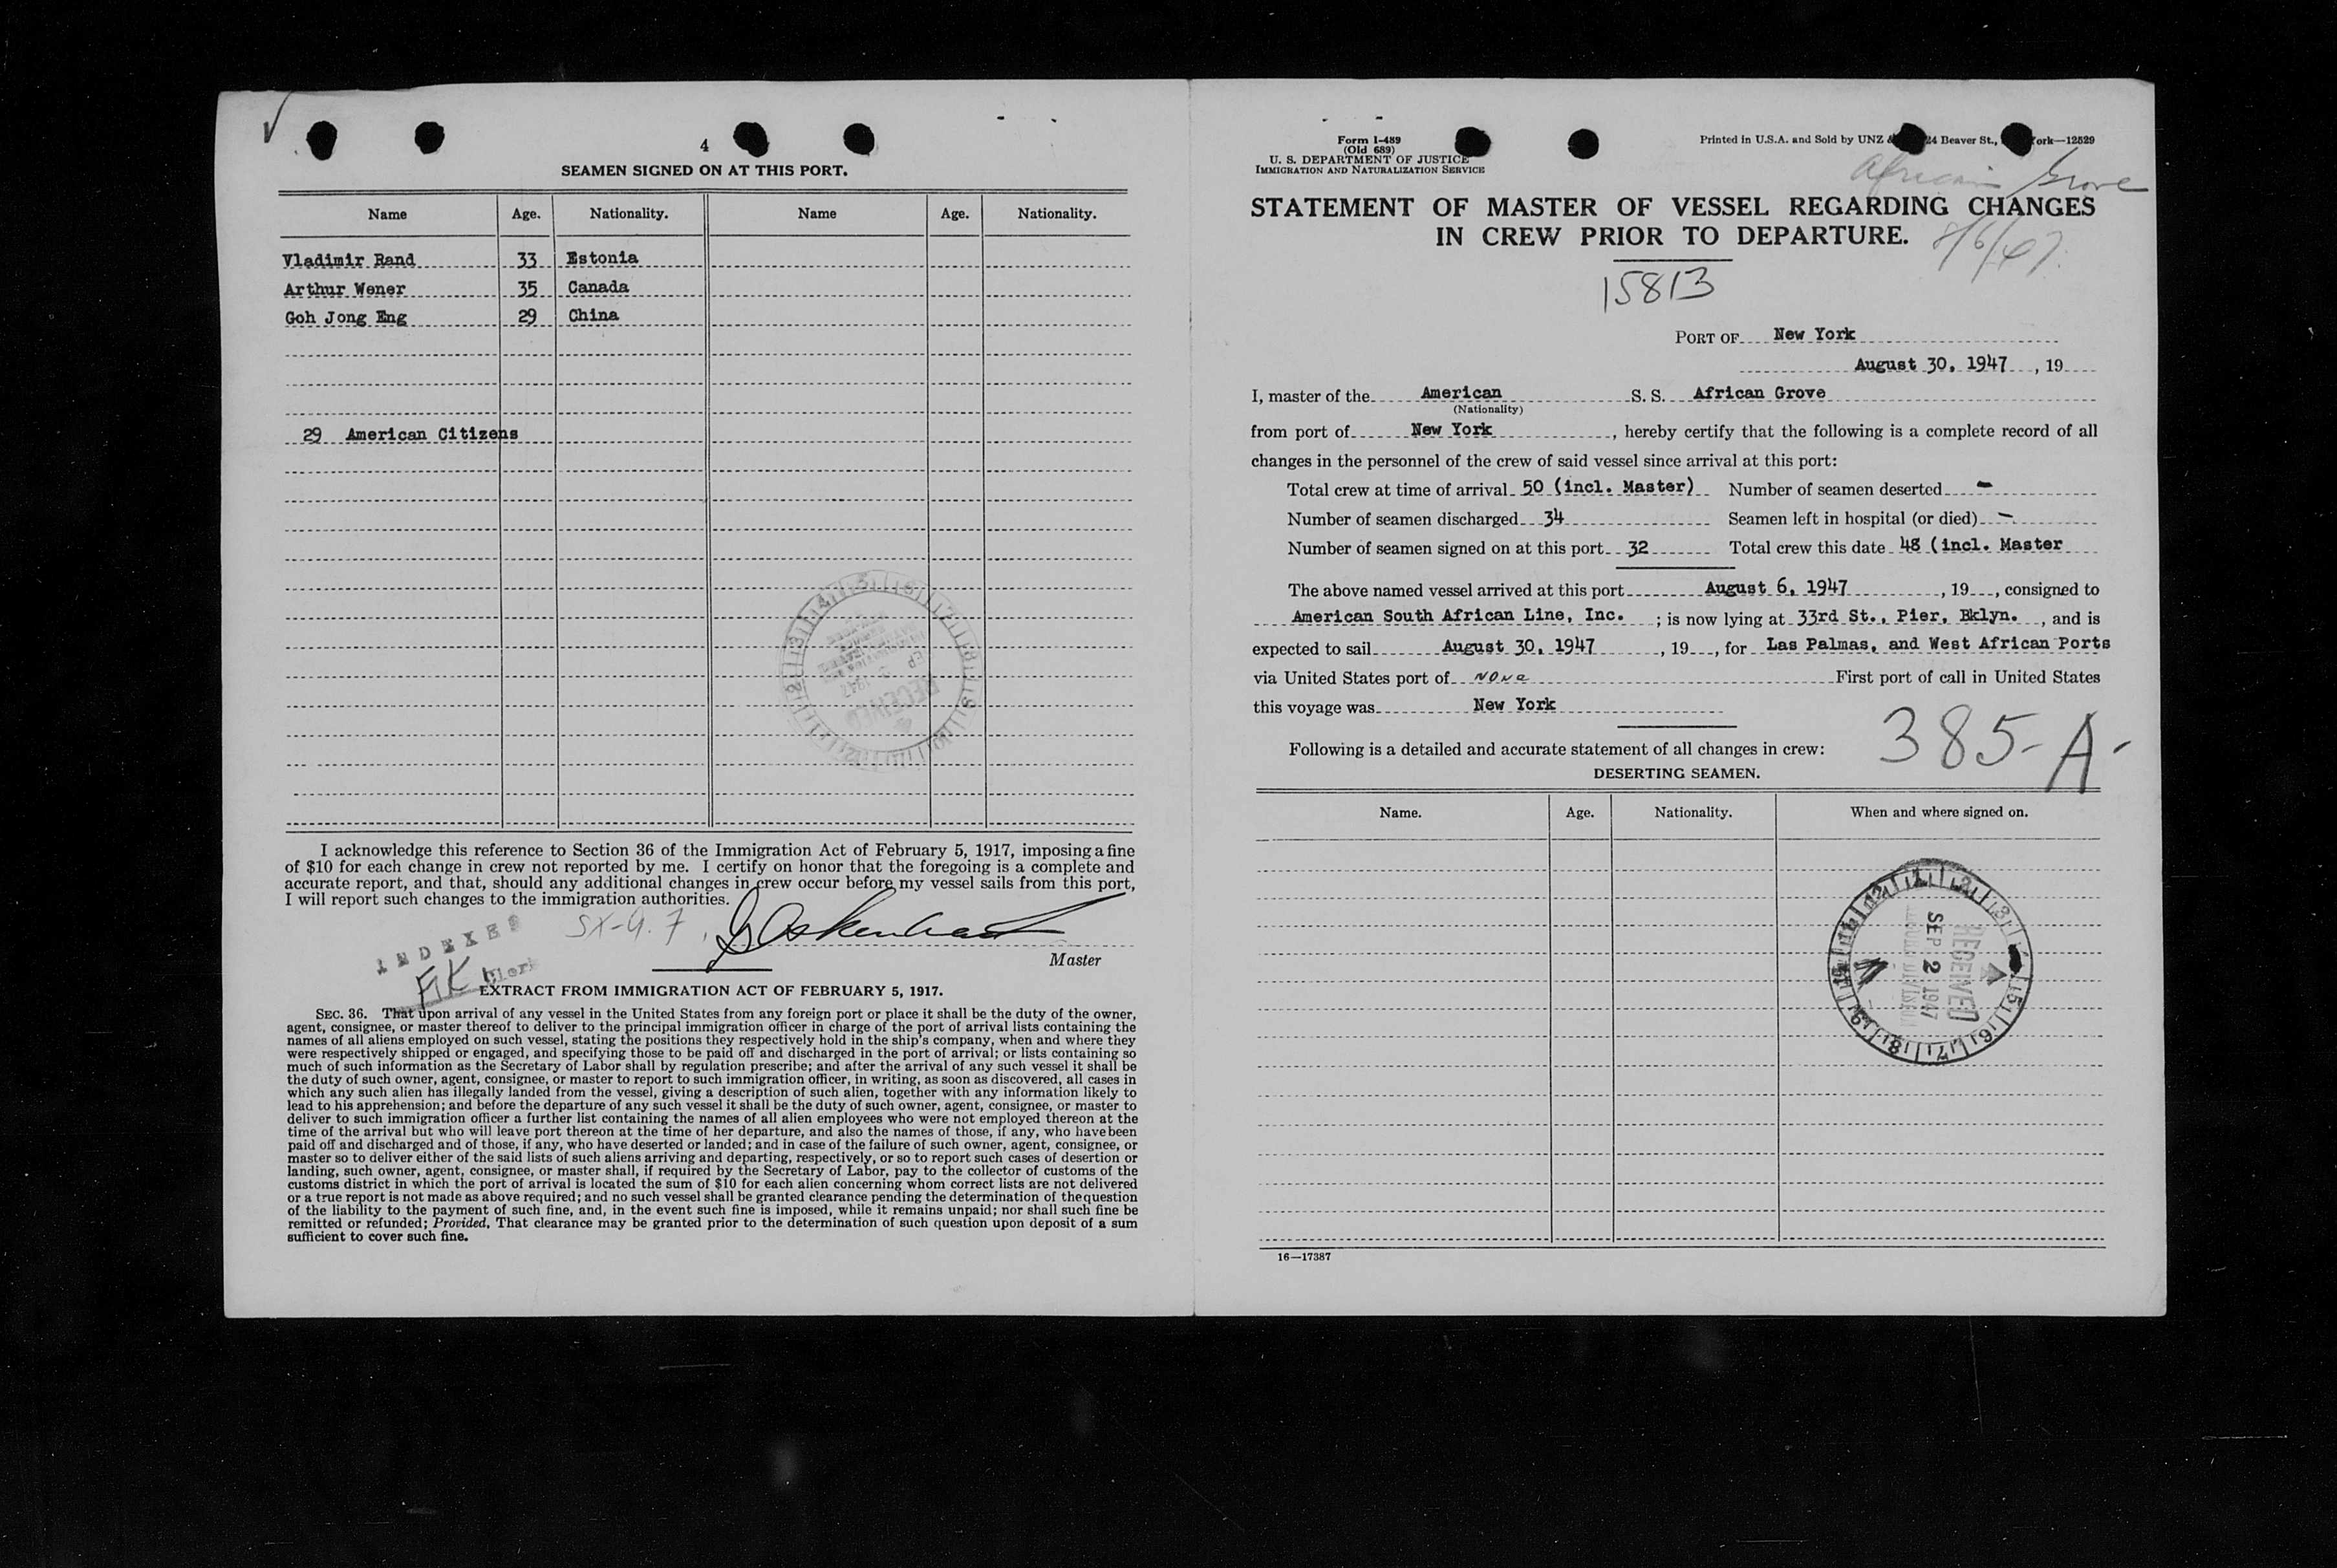 4
SEAMEN SIGNED ON AT THIS PORT.
Name Age. Nationality. Name Age. Nationality.
Vladimir Rand 33 Estonia
Arthur Wener 35 Canada
Goh Jong Eng 29 China
29 American Citizens
I acknowledge this reference to Section 36 of the Immigration Act of February 5, 1917, imposing a fine
of $10 for each change in crew not reported by me. I certify on honor that the foregoing is a complete and
accurate report, and that, should any additional changes in crew occur before my vessel sails from this port,
I will report such changes to the immigration authorities.
INDEXED
Clerk
Master
EXTRACT FROM IMMIGRATION ACT OF FEBRUARY 5, 1917.
SEC. 36. That upon arrival of any vessel in the United States from any foreign port or place it shall be the duty of the owner,
agent, consignee, or master thereof to deliver to the principal immigration officer in charge of the port of arrival lists containing the
names of all aliens employed on such vessel, stating the positions they respectively hold in the ship's company, when and where they
were respectively shipped or engaged, and specifying those to be paid off and discharged in the port of arrival; or lists containing so
much of such information as the Secretary of Labor shall by regulation prescribe; and after the arrival of any such vessel it shall be
the duty of such owner, agent, consignee, or master to report to such immigration officer, in writing, as soon as discovered, all cases in
which any such alien has illegally landed from the vessel, giving a description of such alien, together with any information likely to
lead to his apprehension; and before the departure of any such vessel it shall be the duty of such owner, agent, consignee, or master to
deliver to such immigration officer a further list containing the names of all alien employees who were not employed thereon at the
time of the arrival but who will leave port thereon at the time of her departure, and also the names of those, if any, who have been
paid off and discharged and of those, if any, who have deserted or landed; and in case of the failure of such owner, agent, consignee, or
master so to deliver either of the said lists of such aliens arriving and departing, respectively, or so to report such cases of desertion or
landing, such owner, agent, consignee, or master shall, if required by the Secretary of Labor, pay to the collector of customs of the
customs district in which the port of arrival is located the sum of $10 for each alien concerning whom correct lists are not delivered
or a true report is not made as above required; and no such vessel shall be granted clearance pending the determination of the question
of the liability to the payment of such fine, and, in the event such fine is imposed, while it remains unpaid; nor shall such fine be
remitted or refunded; Provided, That clearance may be granted prior to the determination of such question upon deposit of a sum
sufficient to cover such fine.
Form I-489
(Old 689)
U. S. DEPARTMENT OF JUSTICE
IMMIGRATION AND NATURALIZATION SERVICE
Printed in U.S.A. and Sold by UNZ & 24 Beaver St., ork—12529
African Grove
STATEMENT OF MASTER OF VESSEL REGARDING CHANGES
IN CREW PRIOR TO DEPARTURE.
8/6/47
15813
PORT OF New York
August 30, 1947, 19
I, master of the American S. S. African Grove
(Nationality)
from port of New York, hereby certify that the following is a complete record of all
changes in the personnel of the crew of said vessel since arrival at this port:
Total crew at time of arrival 50 (incl. Master) Number of seamen deserted -
Number of seamen discharged 34 Seamen left in hospital (or died) -
Number of seamen signed on at this port 32 Total crew this date 48 (incl. Master
The above named vessel arrived at this port August 6, 1947, 19, consigned to
American South African Line, Inc. ; is now lying at 33rd St., Pier, Bklyn. , and is
expected to sail August 30, 1947, 19, for Las Palmas, and West African Ports
via United States port of None First port of call in United States
this voyage was New York
Following is a detailed and accurate statement of all changes in crew:
385-A-
DESERTING SEAMEN.
Name. Age. Nationality. When and where signed on.
RECEIVED
SEP 2 1947
16—17387